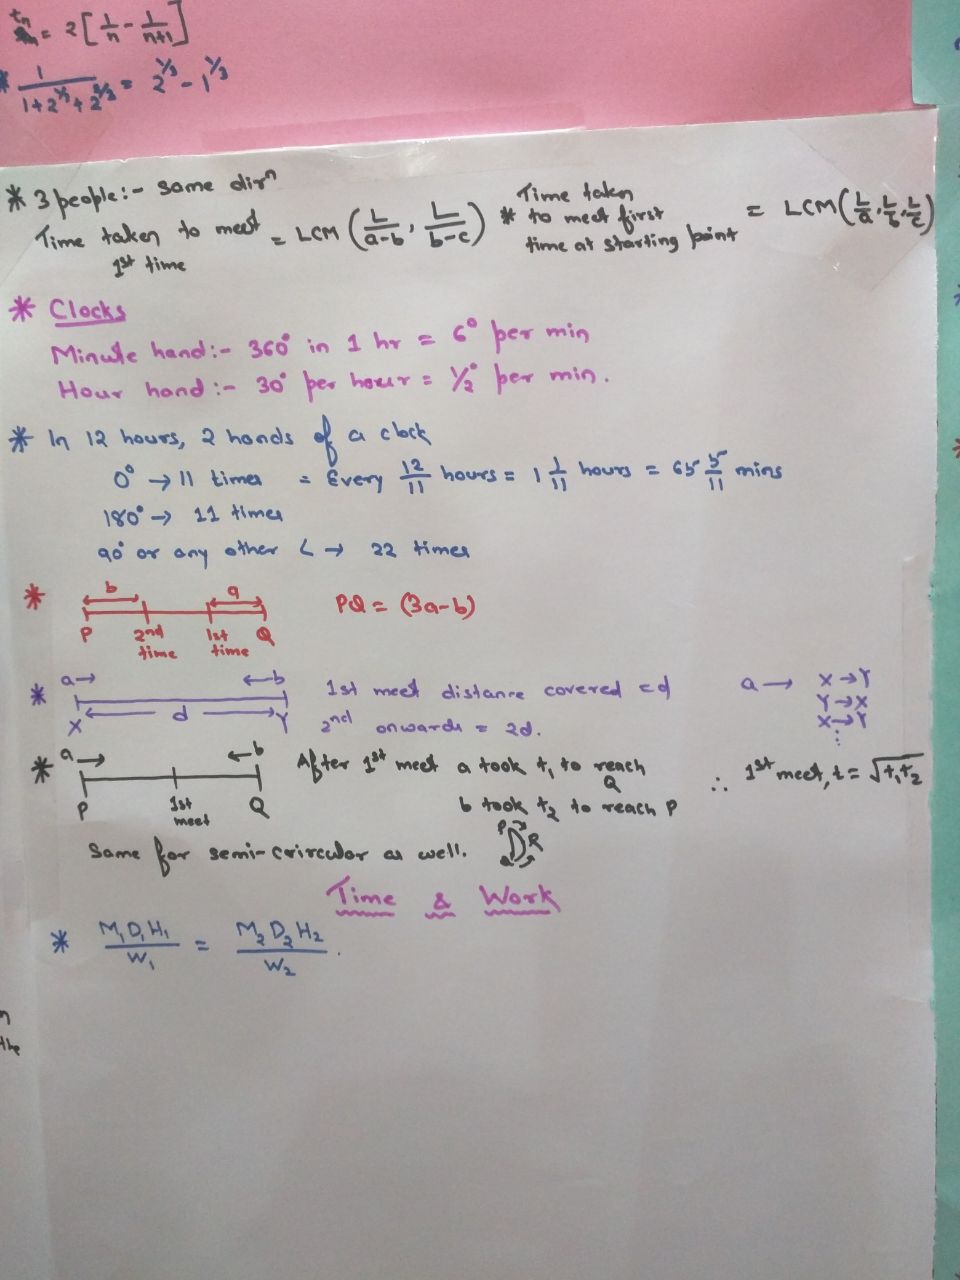 tn = 2 [1/n - 1/n+1]
* 1/(1+2^1/3+2^2/3) = 2^1/3 - 1^1/3
* 3 people:- same dirⁿ
Time taken to meet 1st time = LCM (L/a-b, L/b-c)
* Time taken to meet first time at starting point = LCM (L/a, L/b, L/c)
* Clocks
Minute hand:- 360° in 1 hr = 6° per min
Hour hand:- 30° per hour = ½° per min.
* In 12 hours, 2 hands of a clock
0° → 11 times = Every 12/11 hours = 1 1/11 hours = 65 5/11 mins
180° → 11 times
90° or any other ∠ → 22 times
* b a PQ = (3a-b)
P 2nd time 1st time Q
* a→ ←b 1st meet distance covered = d a → X→Y
X d Y 2nd onwards = 2d. Y→X
X→Y
⋮
* a→ ←b After 1st meet a took t₁ to reach Q ∴ 1st meet, t = √t₁t₂
P 1st meet Q b took t₂ to reach P
Same for semi-crircular as well. P Q R
Time & Work
* M₁D₁H₁/W₁ = M₂D₂H₂/W₂.
n
the